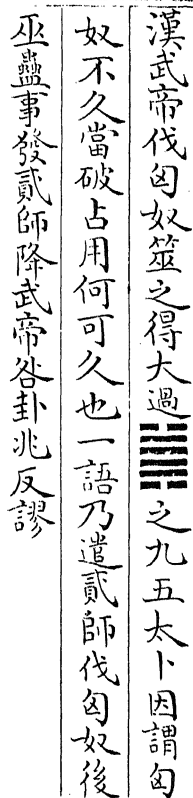 漢武帝伐匈奴筮之得大過䷛之九五太卜因謂匈
奴不久當破占用何可久也一語乃遣貳師伐匈奴後
巫蠱事發貳師降武帝咎卦兆反謬